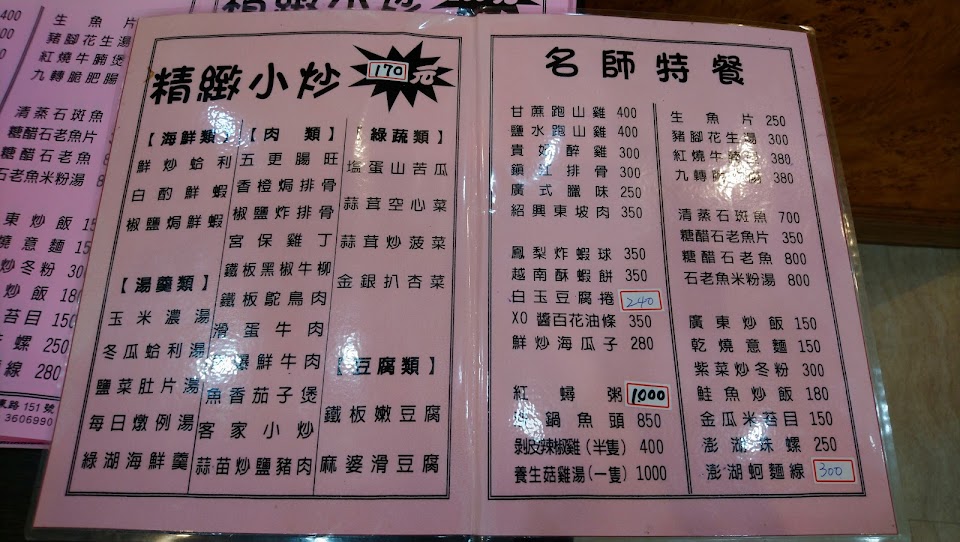 精緻小炒 170元
【海鮮類】
鮮炒蛤利
白酌鮮蝦
椒鹽焗鮮蝦
【湯羹類】
玉米濃湯
冬瓜蛤利湯
鹽菜肚片湯
每日燉例湯
綠湖海鮮羹
【肉類】
五更腸旺
香橙焗排骨
椒鹽炸排骨
宮保雞丁
鐵板黑椒牛柳
鐵板鴕鳥肉
滑蛋牛肉
爆鮮牛肉
魚香茄子煲
客家小炒
蒜苗炒鹽豬肉
【綠蔬類】
塩蛋山苦瓜
蒜茸空心菜
蒜茸炒菠菜
金銀扒杏菜
【豆腐類】
鐵板嫩豆腐
麻婆滑豆腐
名師特餐
甘蔗跑山雞 400
鹽水跑山雞 400
貴妃醉雞 300
鎮江排骨 300
廣式臘味 250
紹興東坡肉 350
鳳梨炸蝦球 350
越南酥蝦餅 350
白玉豆腐捲 240
XO醬百花油條 350
鮮炒海瓜子 280
紅蟳粥 1000
鍋魚頭 850
剝皮辣椒雞(半隻) 400
養生菇雞湯(一隻) 1000
生魚片 250
豬腳花生湯 300
紅燒牛腩煲 380
九轉脆肥腸 380
清蒸石斑魚 700
糖醋石老魚片 350
糖醋石老魚 800
石老魚米粉湯 800
廣東炒飯 150
乾燒意麵 150
紫菜炒冬粉 300
鮭魚炒飯 180
金瓜米苔目 150
澎湖珠螺 250
澎湖蚵麵線 300
400
生魚片
豬腳花生湯
紅燒牛腩煲
九轉脆肥腸
清蒸石斑魚
糖醋石老魚片
糖醋石老魚
石老魚米粉湯
東炒飯 150
燒意麵 150
炒冬粉 300
炒飯 180
苔目 150
螺 250
線 280
東路151號
3606990
精緻小炒